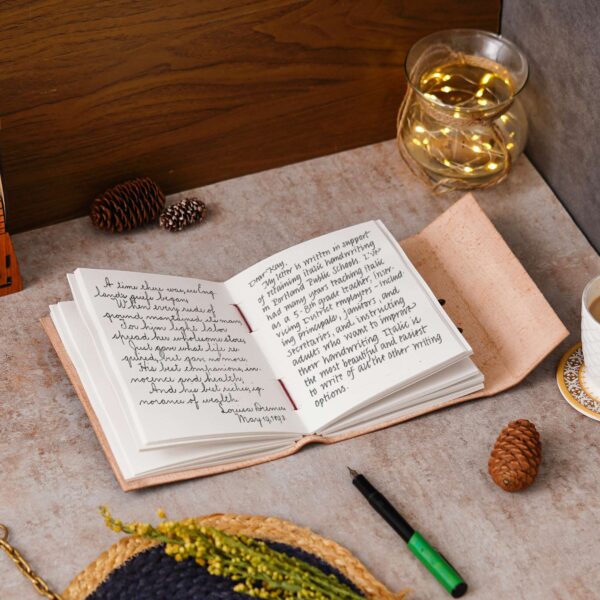 A time there was, ere
land's griefs began,
When every rood of
ground maintained its man,
For him light labor
spread her wholesome store,
Just gave what life re-
quired, but gave no more;
His best companions, in-
nocence and health,
And his best riches, ig-
norance of wealth.
Louisa
May
Dear Kay,
My letter is written in support
of retaining italic handwriting
in Portland Public Schools. I've
had many years teaching italic
as a 5-8th grade teacher, inser-
vicing District employees - includ-
ing principals, janitors, and
secretaries, and instructing
adults who want to improve
their handwriting. Italic is
the most beautiful and easiest
to write of all the other writing
options.